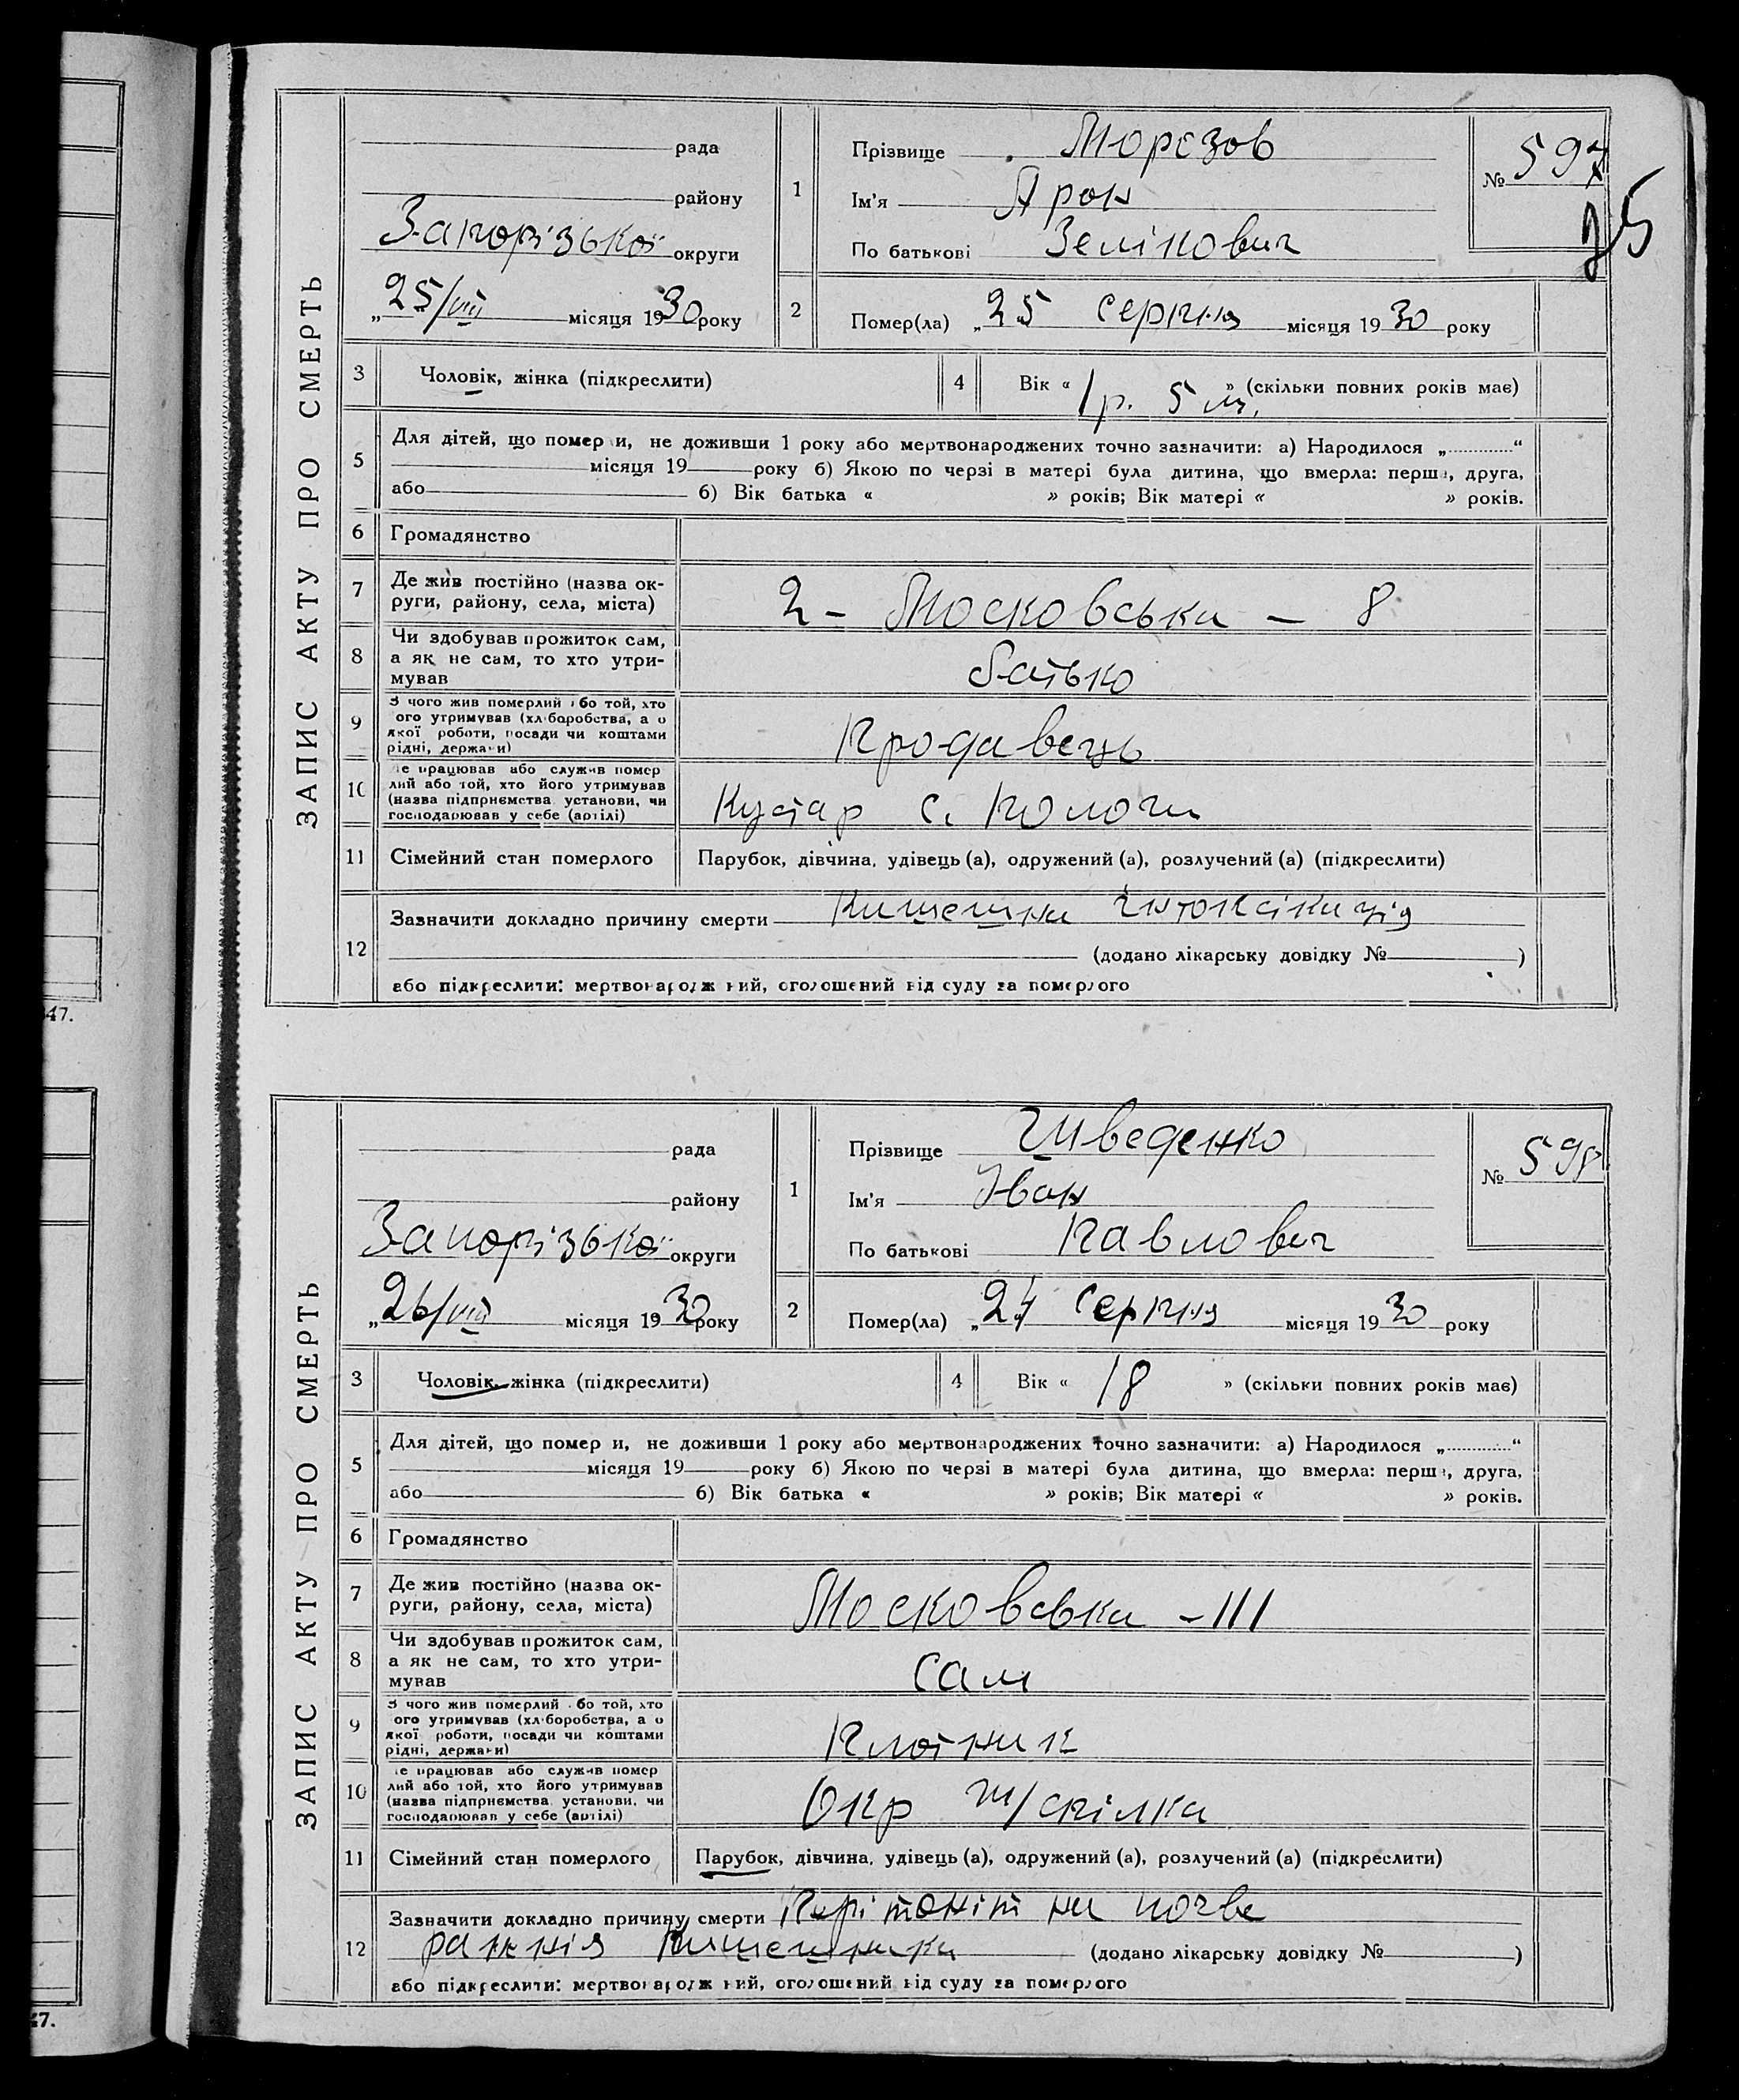 ЗАПИС АКТУ ПРО СМЕРТЬ
рада
району
Запорізької округи
„25/VIII місяця 1930 року
1
Прізвище Морозов
Ім'я Арон
По батькові Зелікович
№ 597
25
2
Помер(ла) „25 серпня місяця 1930 року
3 Чоловік, жінка (підкреслити)
4 Вік « 1 р. 5 м. » (скільки повних років має)
5 Для дітей, що помер и, не доживши 1 року або мертвонароджених точно зазначити: а) Народилося „ “
місяця 19 року б) Якою по черзі в матері була дитина, що вмерла: перша, друга,
або б) Вік батька « » років; Вік матері « » років.
6 Громадянство
7 Де жив постійно (назва ок-
руги, району, села, міста)
2 - Московська - 8
8 Чи здобував прожиток сам,
а як не сам, то хто утри-
мував
батько
9 З чого жив померлий або той, хто
ого утримував (хліборобства, а о
якої роботи, посади чи коштами
рідні, держави)
Продавець
10 Де працював або служив помер
лий або той, хто його утримував
(назва підприємства установи, чи
господарював у себе (артілі)
Кустар с.
11 Сімейний стан померлого Парубок, дівчина, удівець (а), одружений (а), розлучений (а) (підкреслити)
12 Зазначити докладно причину смерти Кишешна інтоксікація
(додано лікарську довідку № )
або підкреслити: мертвонароджений, оголошений від суду за померлого
ЗАПИС АКТУ ПРО СМЕРТЬ
рада
району
Запорізької округи
„26/VIII місяця 1930 року
1
Прізвище Шведенко
Ім'я Іван
По батькові Павлович
№ 598
2
Помер(ла) „24 серпня місяця 1930 року
3 Чоловік, жінка (підкреслити)
4 Вік « 18 » (скільки повних років має)
5 Для дітей, що помер и, не доживши 1 року або мертвонароджених точно зазначити: а) Народилося „ “
місяця 19 року б) Якою по черзі в матері була дитина, що вмерла: перша, друга,
або б) Вік батька « » років; Вік матері « » років.
6 Громадянство
7 Де жив постійно (назва ок-
руги, району, села, міста)
Московська - 111
8 Чи здобував прожиток сам,
а як не сам, то хто утри-
мував
сам
9 З чого жив померлий або той, хто
ого утримував (хліборобства, а о
якої роботи, посади чи коштами
рідні, держави)
Плотник
10 Де працював або служив помер
лий або той, хто його утримував
(назва підприємства установи, чи
господарював у себе (артілі)
Окр ж/спілка
11 Сімейний стан померлого Парубок, дівчина, удівець (а), одружений (а), розлучений (а) (підкреслити)
12 Зазначити докладно причину смерти Перітоніт на почве
ранкнія кишешника
(додано лікарську довідку № )
або підкреслити: мертвонароджений, оголошений від суду за померлого
47.
47.